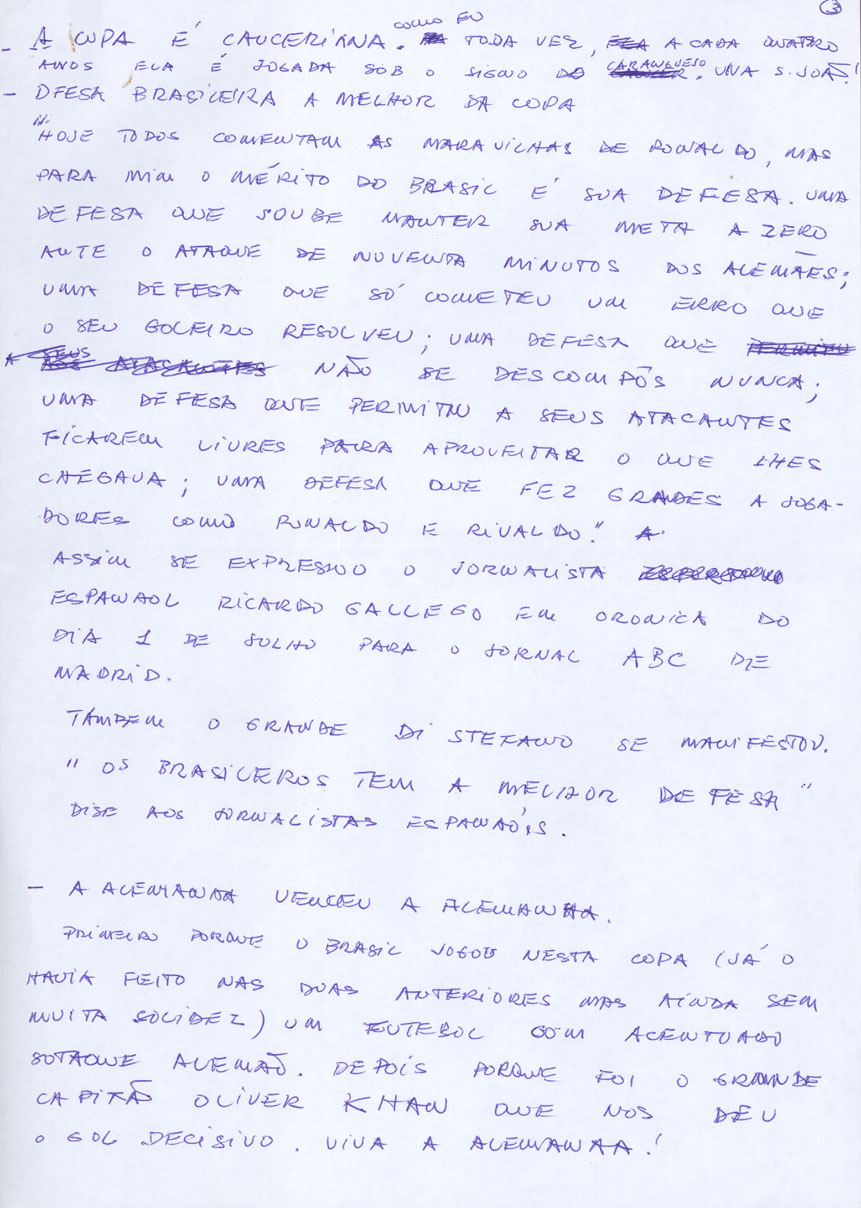 3
– A COPA É CANCERIANA. COMO EU TODA VEZ, A CADA QUATRO
ANOS ELA É JOGADA SOB O SIGNO DO CARANGUEJO. VIVA S. JOÃO!
– DFESA BRASILEIRA A MELHOR DA COPA
"HOJE TODOS COMENTAM AS MARAVILHAS DE RONALDO, MAS
PARA MIM O MÉRITO DO BRASIL É SUA DEFESA. UMA
DEFESA QUE SOUBE MANTER SUA META A ZERO
ANTE O ATAQUE DE NOVENTA MINUTOS DOS ALEMÃES;
UMA DEFESA QUE SÓ COMETEU UM ERRO QUE
O SEU GOLEIRO RESOLVEU; UMA DEFESA QUE
NÃO SE DESCOMPÔS NUNCA;
UMA DEFESA QUE PERMITIU A SEUS ATACANTES
FICAREM LIVRES PARA APROVEITAR O QUE LHES
CHEGAVA; UMA DEFESA QUE FEZ GRANDES A JOGA-
DORES COMO RONALDO E RIVALDO."
ASSIM SE EXPRESSOO O JORNALISTA
ESPANHOL RICARDO GALLEGO EM CRONICA DO
DIA 1 DE JULHO PARA O JORNAL ABC DE
MADRID.
TAMBEM O GRANDE DI STEFANO SE MANIFESTOU.
"OS BRASILEROS TEM A MELHOR DEFESA"
DISE AOS JORNALISTAS ESPANHÓIS.
– A ALEMANHA VENCEU A ALEMANHA.
PRIMEIRO PORQUE O BRASIL JOGOU NESTA COPA (JÁ O
HAVIA FEITO NAS DUAS ANTERIORES MAS AINDA SEM
MUITA SOLIDEZ) UM FUTEBOL COM ACENTUADO
SOTAQUE ALEMÃO. DEPOIS PORQUE FOI O GRANDE
CAPITÃO OLIVER KHAN QUE NOS DEU
O GOL DECISIVO. VIVA A ALEMANHA!